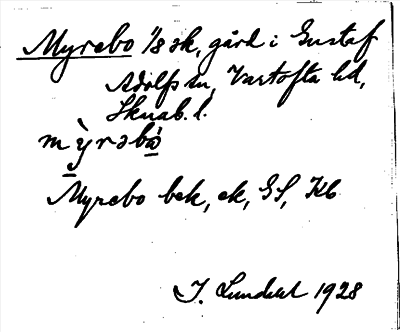 Myrebo 1/8 sk, gård i Gustaf
Adolfs sn, Vartofta hd,
Skarab. l.
mỳrəbò̱
Myrebo bek, ek, GS, Kb
J. Lundahl 1928